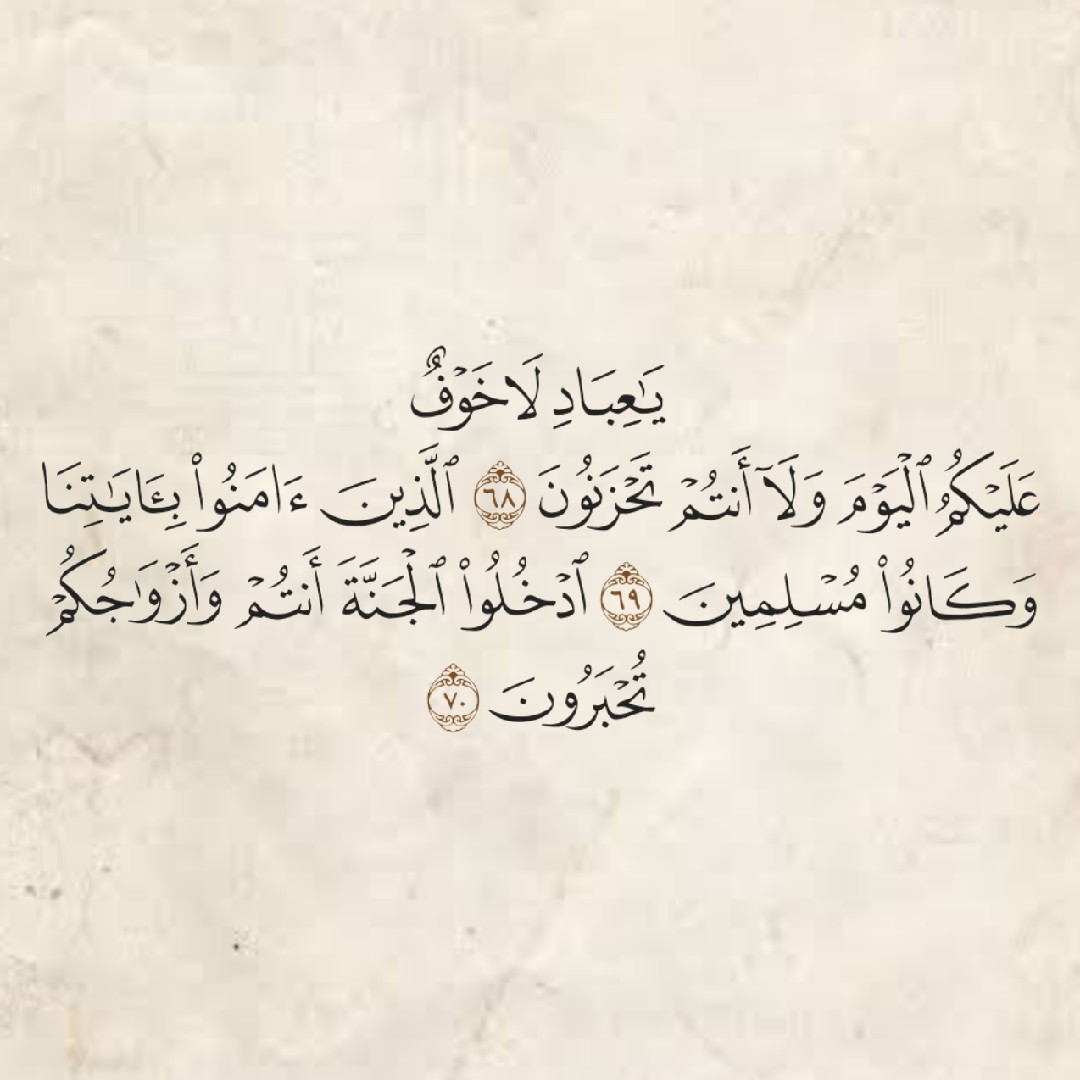 يَـٰعِبَادِ لَا خَوۡفٌ
عَلَيۡكُمُ ٱلۡيَوۡمَ وَلَآ أَنتُمۡ تَحۡزَنُونَ ٦٨ ٱلَّذِينَ ءَامَنُواْ بِـَٔايَـٰتِنَا
وَكَانُواْ مُسۡلِمِينَ ٦٩ ٱدۡخُلُواْ ٱلۡجَنَّةَ أَنتُمۡ وَأَزۡوَٰجُكُمۡ
تُحۡبَرُونَ ٧٠